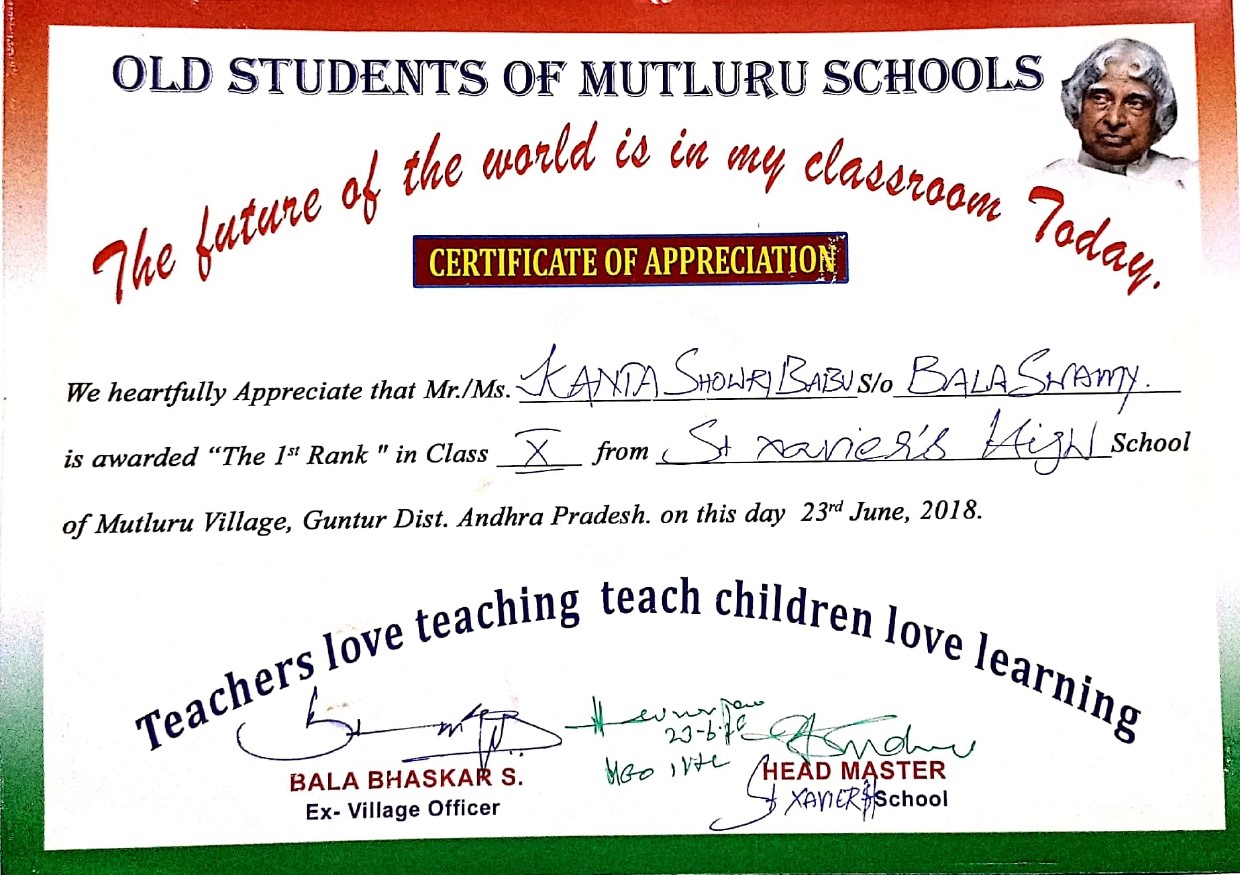 OLD STUDENTS OF MUTLURU SCHOOLS
The future of the world is in my classroom Today.
CERTIFICATE OF APPRECIATION
We heartfully Appreciate that Mr./Ms. KANTA SHOWRI BABU S/o BALA SWAMY.
is awarded “The 1st Rank " in Class X from St xavier's High School
of Mutluru Village, Guntur Dist. Andhra Pradesh. on this day 23rd June, 2018.
Teachers love teaching teach children love learning
BALA BHASKAR S.
Ex- Village Officer
HEAD MASTER
St XAVIER School